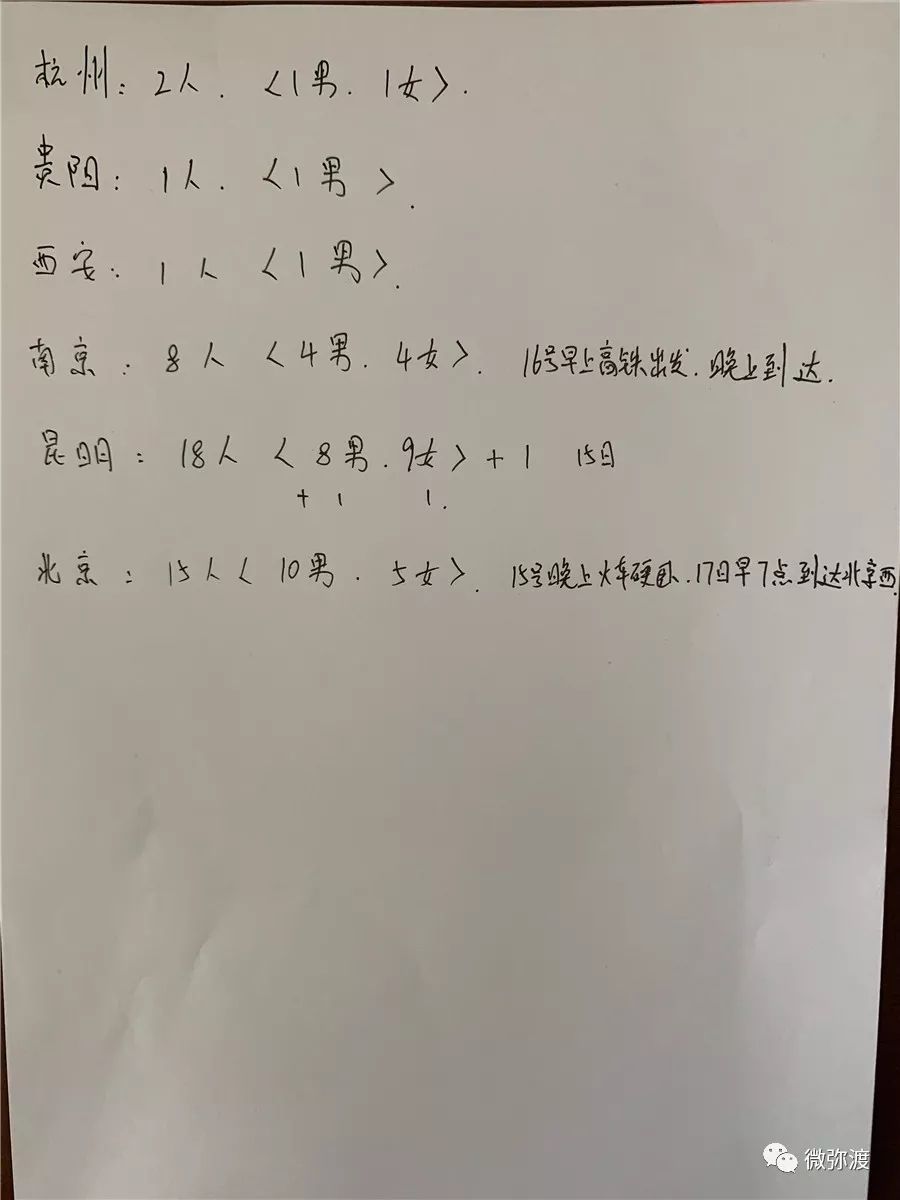 杭州：2人．〈1男．1女〉．
贵阳：1人．〈1男〉．
西安：1人〈1男〉．
南京：8人〈4男．4女〉．16号早上高铁出发．晚上到达．
昆明：18人〈8男．9女〉+1 15日
+1 1．
北京：15人〈10男．5女〉．15号晚上火车硬卧．17日早7点到达北京西．
微弥渡